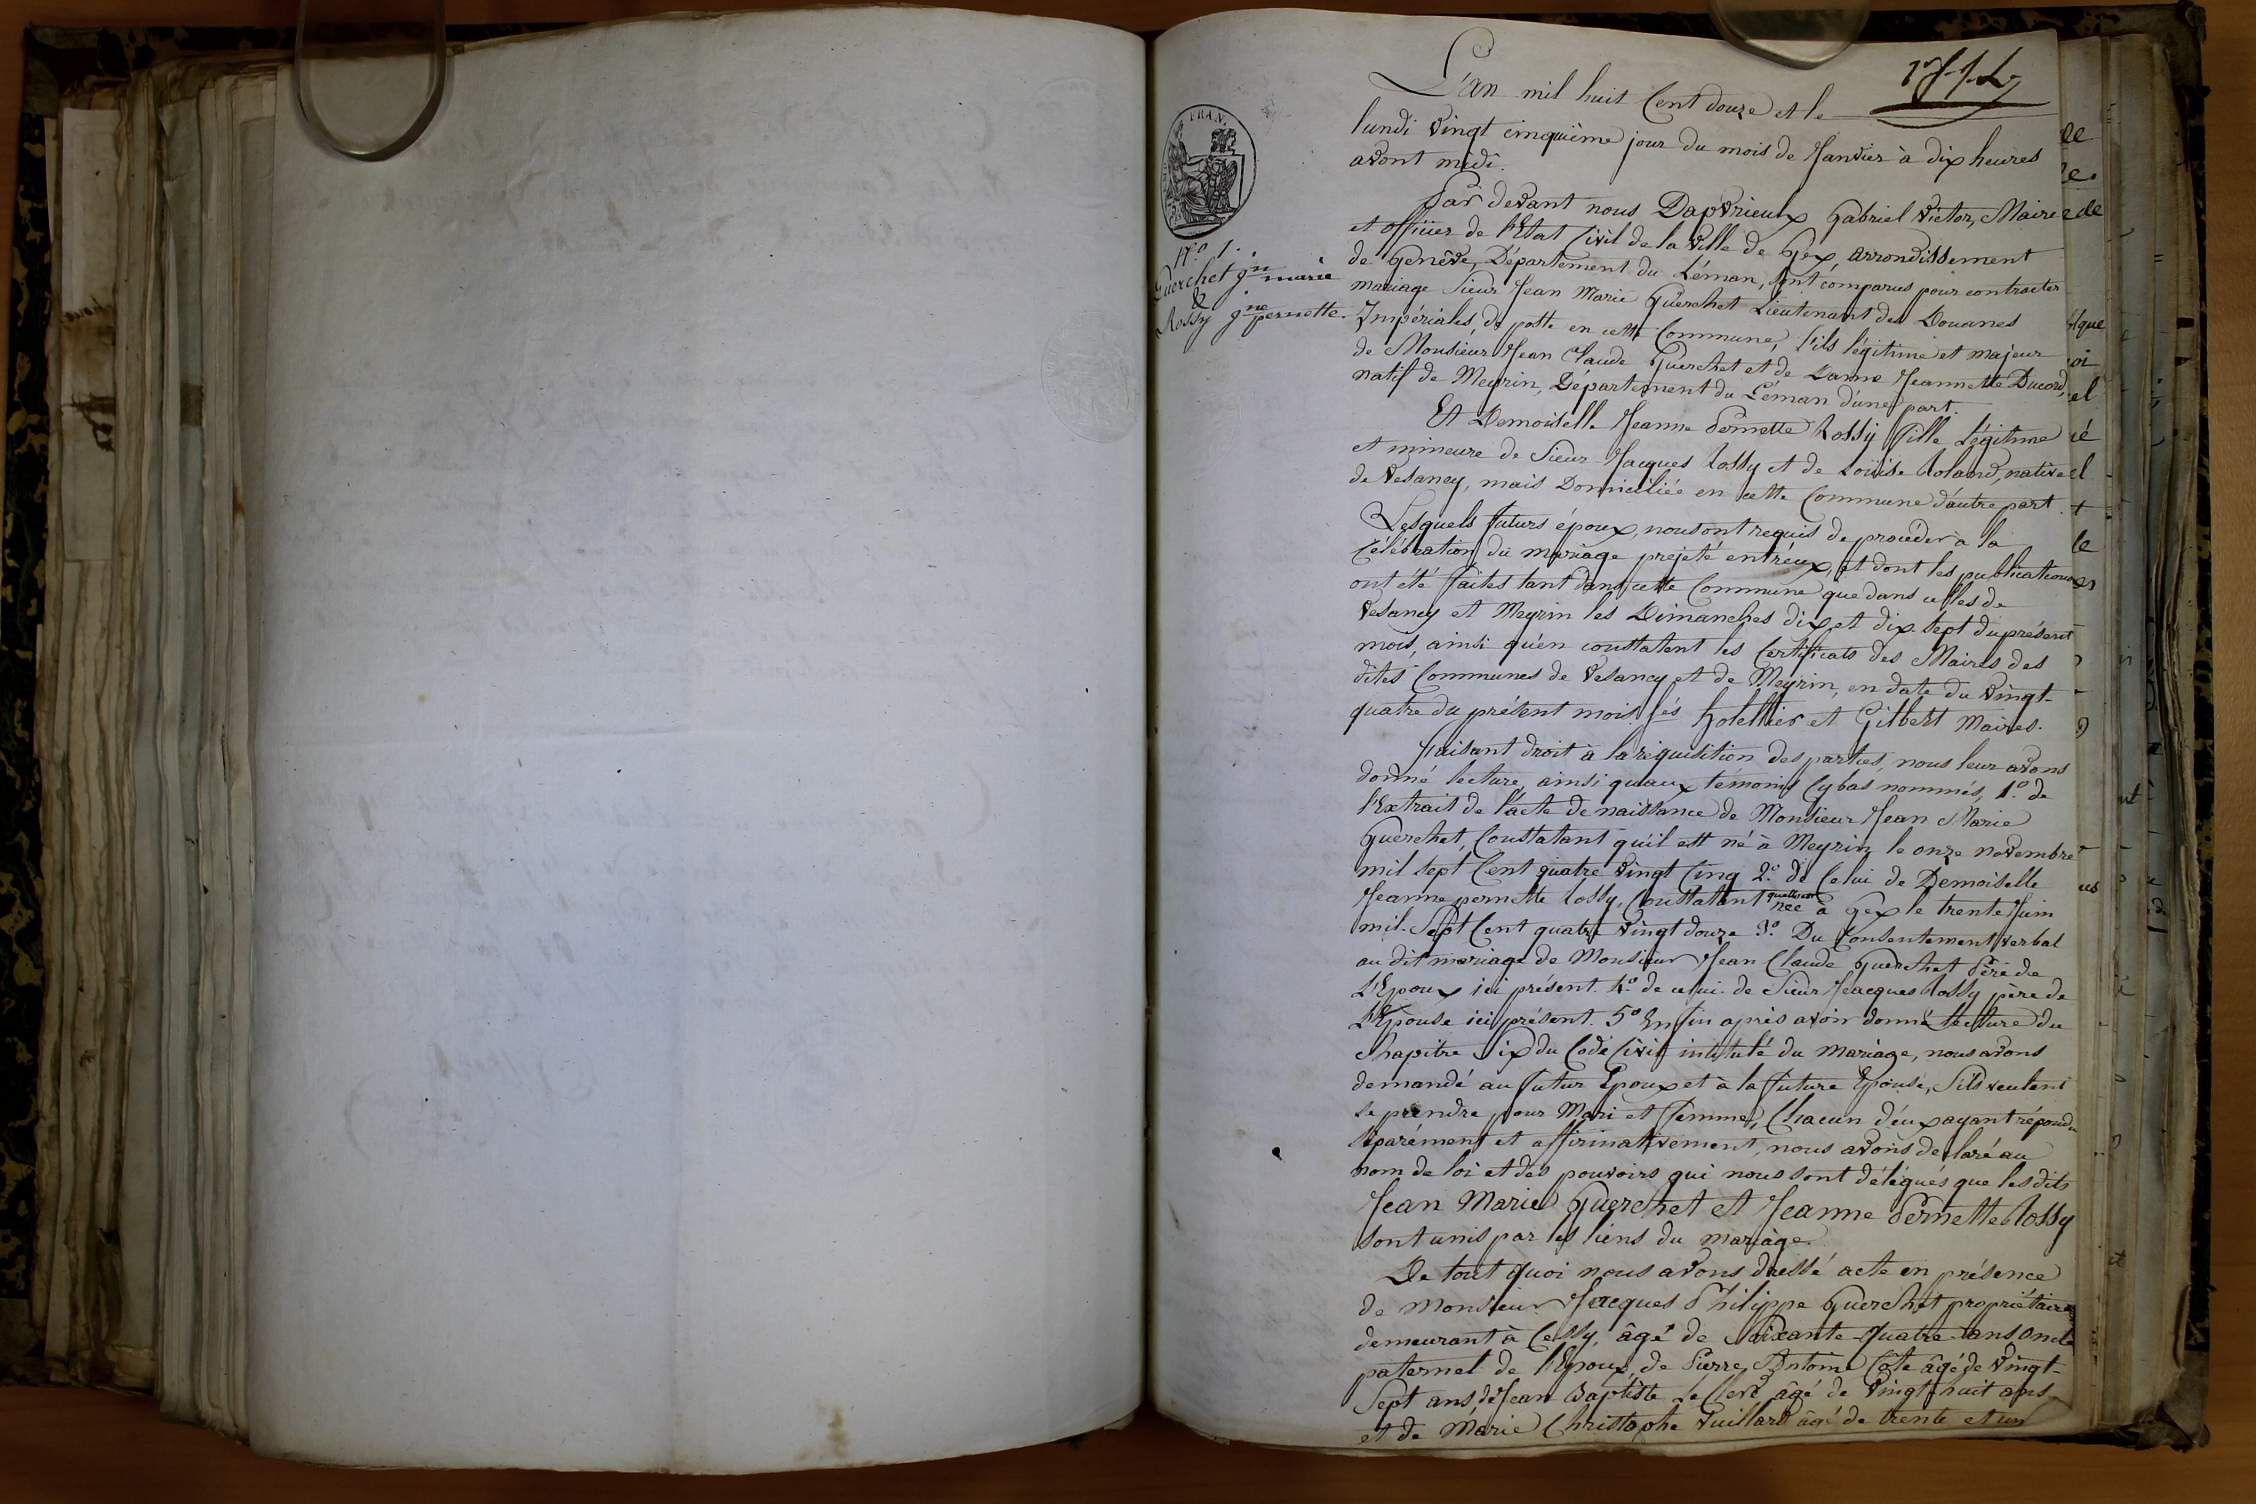 L'an mil huit Cent douze et le
lundi vingt cinquième jour du mois de Janvier à dix heures
avant midi.
Par devant nous Dapvrieulx Gabriel Victor, Maire
et officier de l'Etat Civil de la Ville de Gex, arrondissement
de Genève, Département du Léman, sont comparus pour contracter
mariage Sieur Jean Marie Guerchet Lieutenant des Douanes
Impériales, de poste en cette Commune, fils légitime et majeur
de Monsieur Jean Claude Guerchet et de Dame Jeannette Ducord,
natif de Meyrin, Département du Léman d'une part.
Et Demoiselle Jeanne Pernette Rossy fille Légitime
et mineure de Sieur Jacques Rossy et de Louise Roland, native
de Vesancy, mais Domiciliée en cette Commune d'autre part.
Lesquels futurs époux, nous ont requis de procéder à la
Célébration du mariage projeté entr'eux, et dont les publications
ont été faites tant dans cette Commune que dans celles de
Vesancy et Meyrin les Dimanches dix et dix-sept du présent
mois, ainsi qu'en constatent les Certificats des Maires des
dites Communes de Vesancy et de Meyrin, en date du vingt-
quatre du présent mois sés et Gilbert Maires.
Faisant droit à la réquisition des parties, nous leur avons
donné lecture ainsi qu'aux témoins Cybas nommés, 1.º de
l'Extrait de l'acte de naissance de Monsieur Jean Marie
Guerchet, Constatant qu'il est né à Meyrin le onze novembre
mil sept Cent quatre vingt Cinq 2.º de Celui de Demoiselle
Jeanne pernette Rossy, Constatant qu'elle est née à Gex le trente Juin
mil-Sept Cent quatre vingt douze 3.º Du Consentement verbal
au dit mariage de Monsieur Jean Claude Guerchet Père de
L'Epoux ici présent. 4.º de celui de Sieur Jacques Rossy père de
L'Epouse ici présent. 5º Enfin après avoir donné lecture du
Chapitre Six du Code Civil intitulé du mariage, nous avons
demandé au futur Epoux et à la future Epouse, S'ils veulent
se prendre pour Mari et femme, Chacun d'eux ayant répondu
Séparément et affirmativement, nous avons déclaré au
nom de loi et des pouvoirs qui nous sont délégués que les dits
Jean Marie Guerchet et Jeanne Pernette Rossy
sont unis par les liens du mariage.
De tout quoi nous avons dressé acte en présence
de Monsieur Jacques Philippe Guerchet propriétaire
demeurant à Cessy, âgé de Soixante-quatre ans oncle
paternel de l'Epoux, de Pierre Antoine Côte âgé de vingt-
Sept ans, de Jean Baptiste Le Clerc âgé de vingt huit ans
et de Marie Christophe Vuillard âgé de trente et un
FRAN.
N.º 1.
Guerchet jn marie
&
Rossy jne pernette.